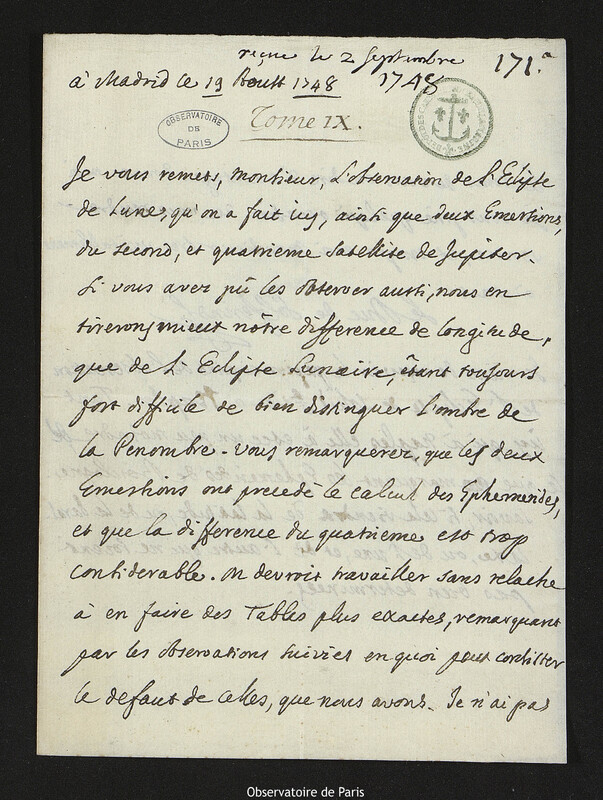 reçue le 2 Septembre 1748
171.a
à Madrid ce 19 Aoust 1748
OBSERVATOIRE DE PARIS
Tome IX.
Je vous remets, Monsieur, L'observation de l'Eclipse
de Lune, qu'on a fait icy, ainsi que deux Emersions,
du second, et quatrieme satellite de Jupiter.
Si vous avez pû les observer aussi, nous en
tirerons mieux nôtre difference de longitude,
que de l'Eclipse Lunaire, êtant toujours
fort difficile de bien distinguer l'ombre de
la Penombre. Vous remarquerez, que les deux
Emersions ont precedé le calcul des Ephemerides,
et que la difference du quatrieme est trop
considerable. On devroit travailler sans relache
à en faire des Tables plus exactes, remarquant
par les observations suivies en quoi peut consister
le defaut de celles, que nous avons. Je n'ai pas
Observatoire de Paris